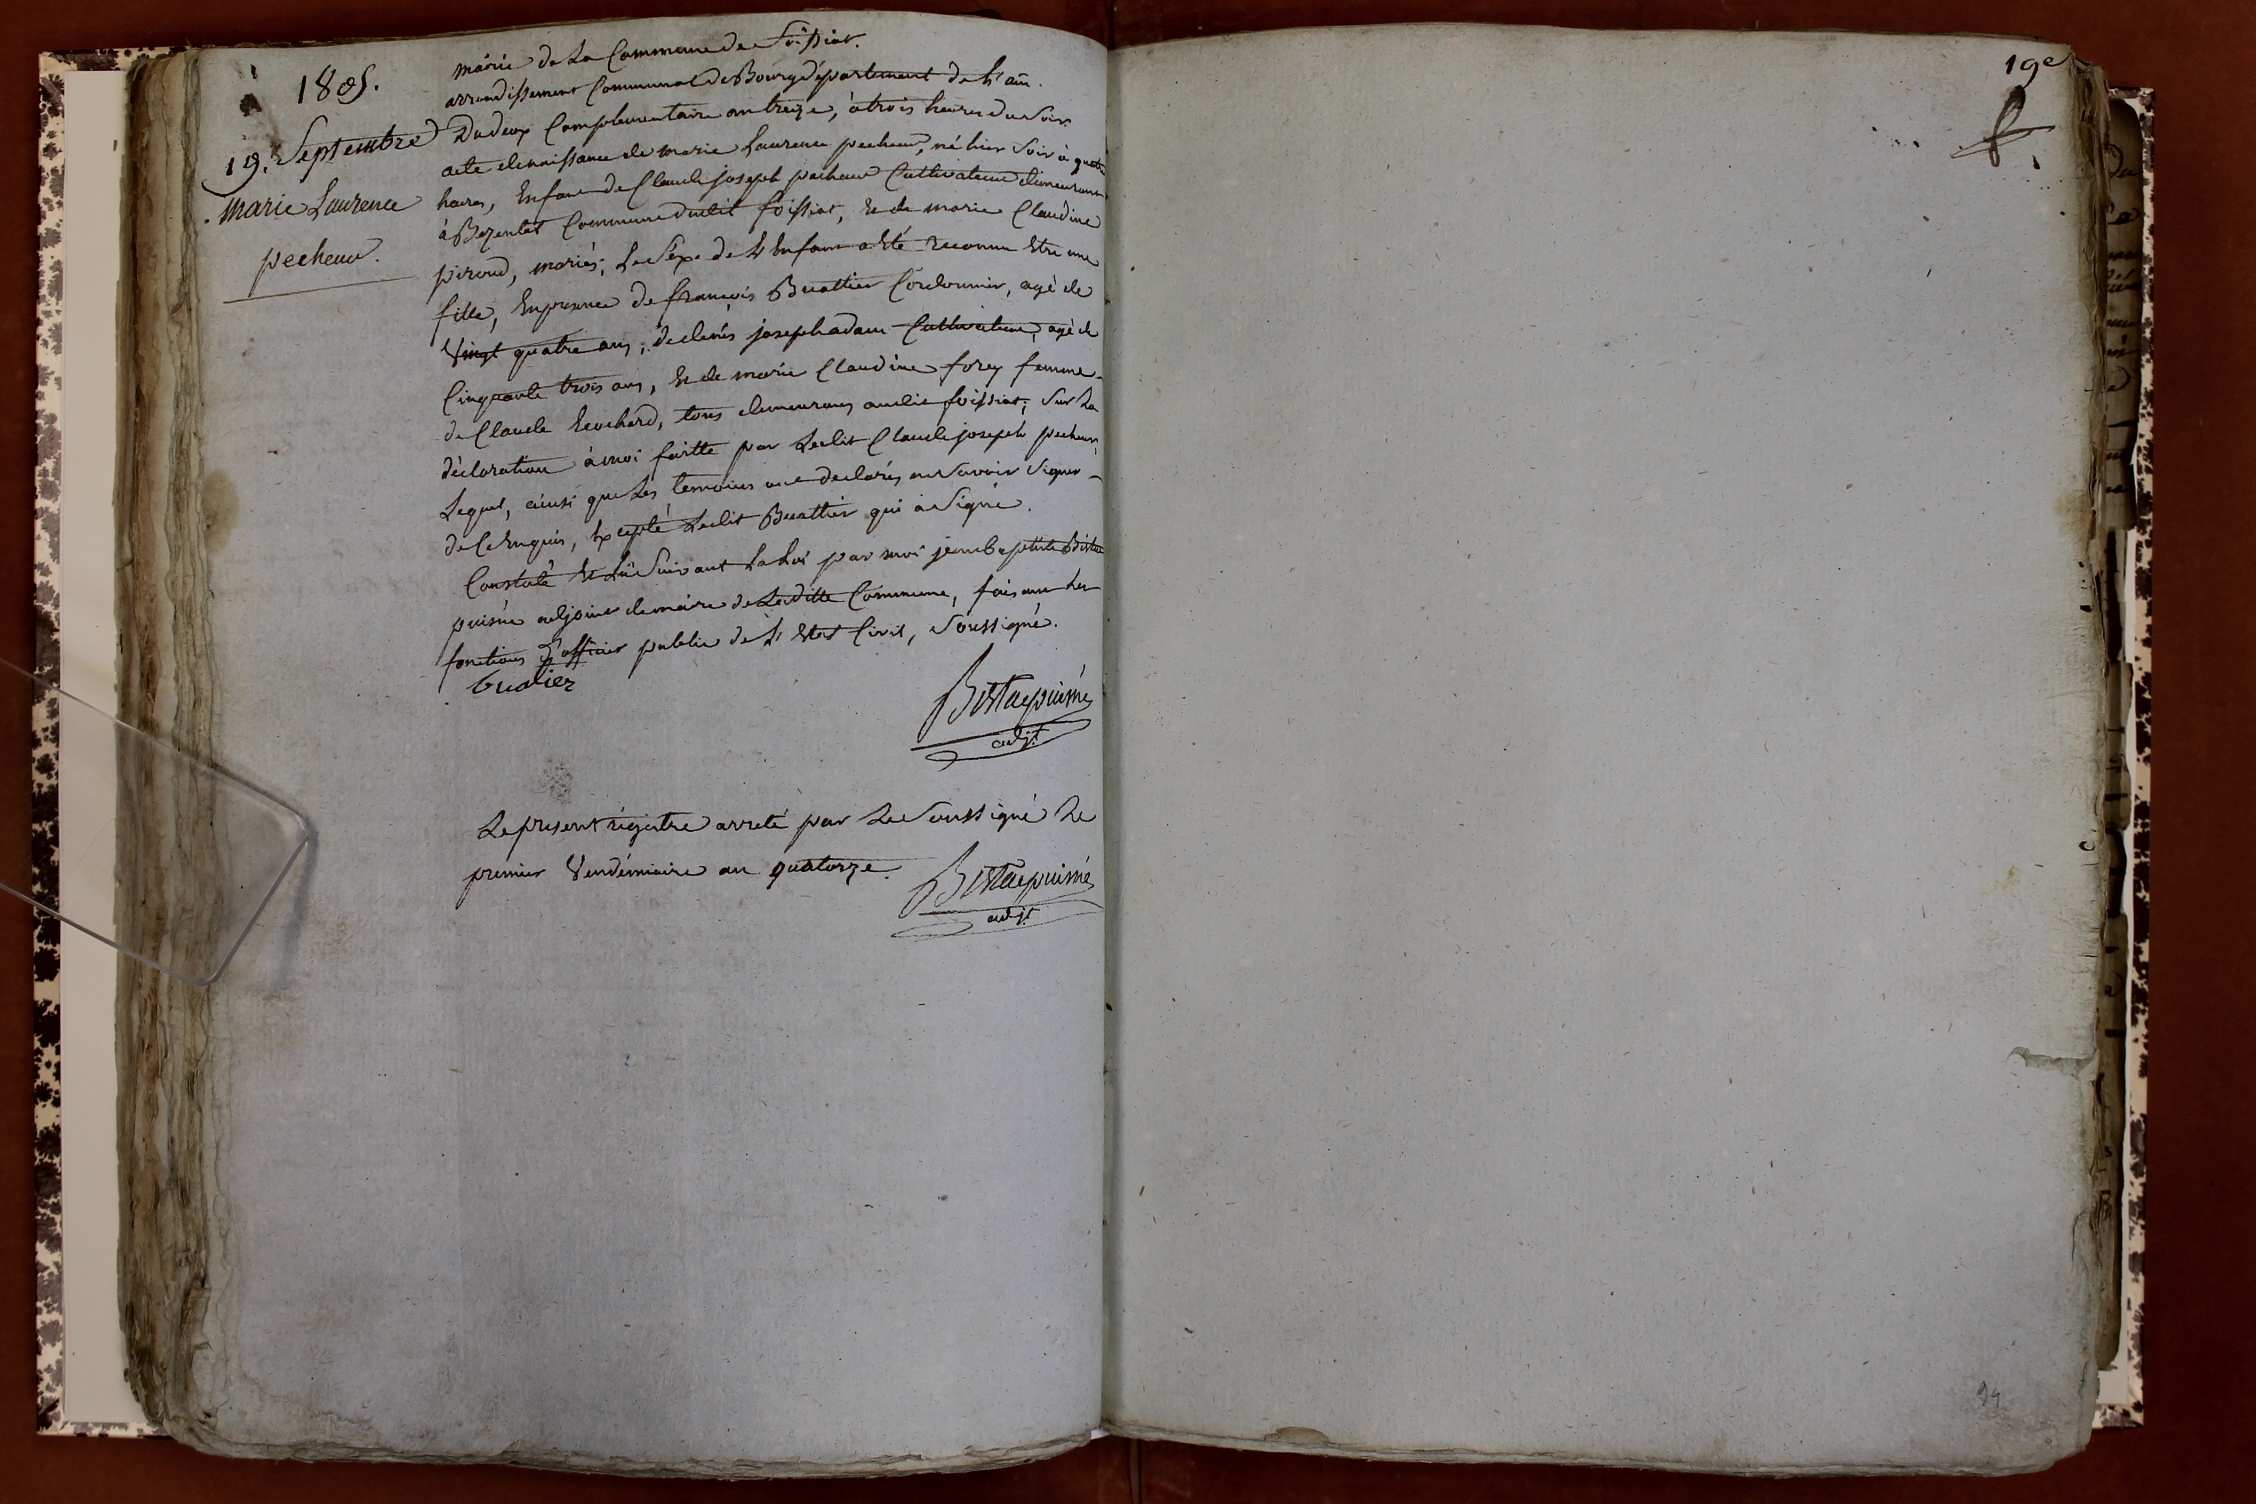 1805.
19. Septembre
marie Laurence
pecheur.
mairie de La Commune de foissiat.
arrondissement Communal de Bourg département de L'ain.
Du deux Complementaire an treize, à trois heures du Soir
acte de naissance de marie Laurence pecheur, né hier Soir à quatre
heures, Enfant de Claude joseph pecheur Cultivateur demeurant
à Bezentet Commune dudit foissiat, Et de marie Claudine
piroud, mariés; Le Sexe de L'Enfant a Eté reconnu Etre une
fille, En presence de françois Buattier Cordonnier, agé de
Vingt quatre ans, de denis joseph adam Cultivateur, agé de
Cinquante trois ans, Et de marie Claudine forey femme
de Claude Ecochard, tous demeurans audit foissiat; Sur La
déclaration à moi faitte par Ledit Claude joseph pecheur,
Lequel, ainsi que Les temoins ont declarés ne Savoir Signer
de Ce Enquis, Excepté Ledit Buattier qui a Signé.
Constaté Et Lû Suivant La Loi par moi jean baptiste
puisné adjoint de maire de Laditte Commune, faisant Les
fonctions d'officier public de L'Etat Civil, Soussigné.
buatier
puisné
adjt.
Le present régistre arreté par Le Soussigné Le
premier Vendémiaire an quatorze.
puisné
adjt
19e
94